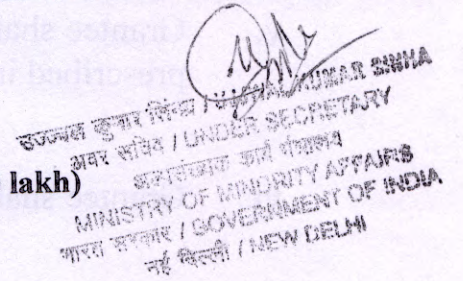 उज्ज्वल कुमार सिंह / UJJWAL KUMAR SINHA
अवर सचिव / UNDER SECRETARY
lakh)
अल्पसंख्यक कार्य मंत्रालय
MINISTRY OF MINORITY AFFAIRS
भारत सरकार / GOVERNMENT OF INDIA
नई दिल्ली / NEW DELHI